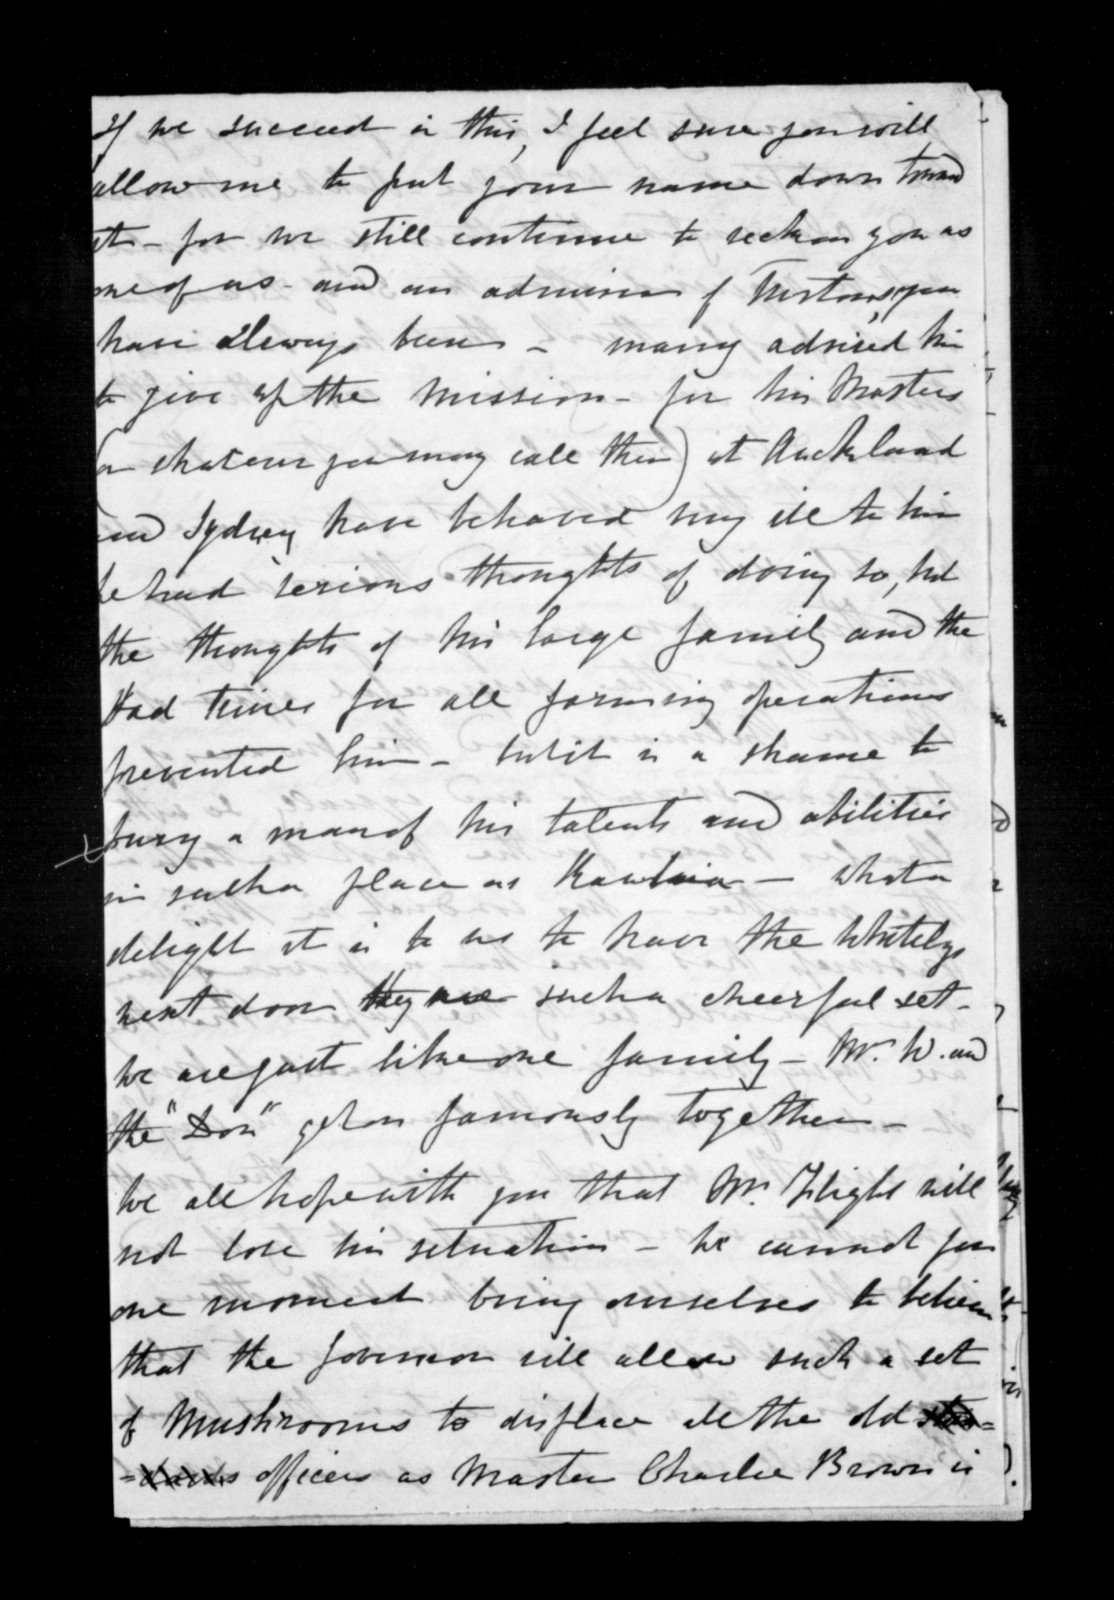 If we succeed in this, I feel sure you will
allow me to put your name down toward
it - for we still continue to reckon you as
one of us - and an admirer of you
have always been - many advised him
to give up the Mission - for his Masters
(or whatever you may call them) at Auckland
and Sydney have behaved very ill to him
he had serious thoughts of doing so, but
the thoughts of his large family and the
bad times for all farming operations
prevented him - but it is a shame to
bury a man of his talents and abilities
in such a place as Kawhia - what a
delight it is to us to have the Whitelys
next door they are such a cheerful set -
we are just like one family - Mr. W. and
the "Don" get on famously together -
We all hope with you that Mr. Flight will
not lose his situation - we cannot for
one moment bring ourselves to believe
that the Governor will allow such a set
of Mushrooms to displace all the old stan=
=dards officers as Master Charlie Brown is